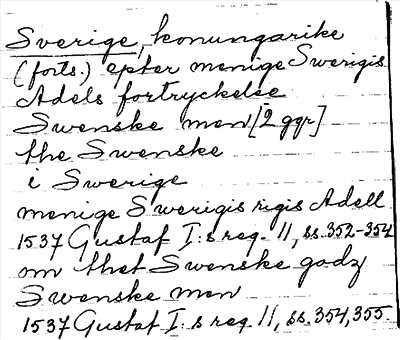 Sverige, konungarike
(forts.) epter menige Swerigis
Adels fortryckelse
Swenske men [2 ggr]
the Swenske
i Swerige
menige Swerigis rigis Adell
1537 Gustaf I:s reg. 11, ss. 352-354
om thet Swenske godz
Swenske men
1537 Gustaf I:s reg. 11, ss. 354, 355.